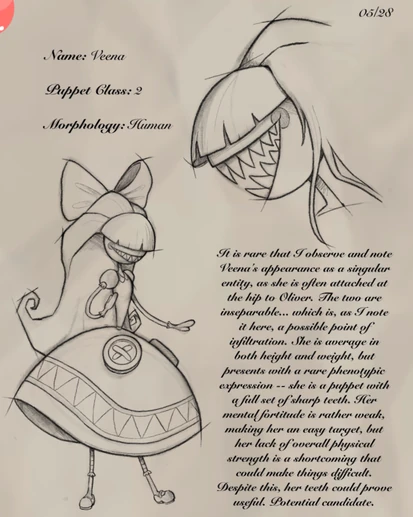 05/28
Name: Veena
Puppet Class: 2
Morphology: Human
It is rare that I observe and note
Veena's appearance as a singular
entity, as she is often attached at
the hip to Oliver. The two are
inseparable... which is, as I note
it here, a possible point of
infiltration. She is average in
both height and weight, but
presents with a rare phenotypic
expression -- she is a puppet with
a full set of sharp teeth. Her
mental fortitude is rather weak,
making her an easy target, but
her lack of overall physical
strength is a shortcoming that
could make things difficult.
Despite this, her teeth could prove
useful. Potential candidate.